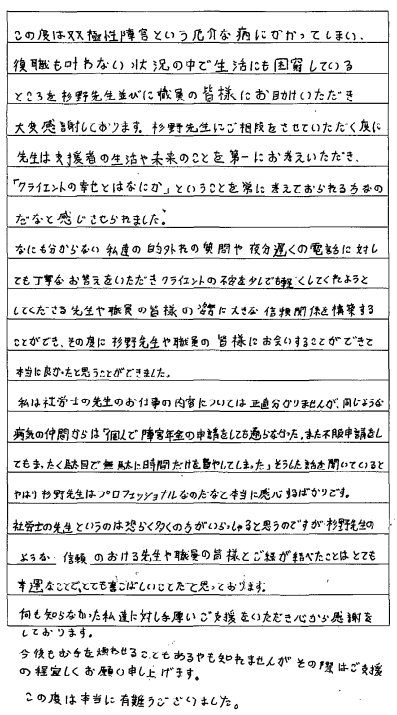 この度は双極性障害という厄介な病にかかってしまい、
復職も叶わない状況の中で生活にも困窮している
ところを杉野先生並びに職員の皆様にお助けいただき
大変感謝しております。杉野先生にご相談をさせていただく度に
先生は支援者の生活や未来のことを第一にお考えいただき、
「クライエントの幸せとはなにか」ということを常に考えておられる方なの
だなと感じさせられました。
なにも分からない私達の的外れの質問や夜分遅くの電話に対し
ても丁寧なお答えをいただきクライエントの不安を少しでも軽くしてくれようと
してくださる先生や職員の皆様の姿に大きな信頼関係を構築する
ことができ、その度に杉野先生や職員の皆様にお会いすることができて
本当に良かったと思うことができました。
私は社労士の先生のお仕事の内容については正直分かりませんが、同じような
病気の仲間からは「個人で障害年金の申請をしても通らなかった。また不服申請をし
てもまったく駄目で無駄に時間だけを費やしてしまった」そうした話を聞いていると
やはり杉野先生はプロフェッショナルなのだなと本当に感心するばかりです。
社労士の先生というのは恐らく多くの方がいらっしゃると思うのですが杉野先生の
ような信頼のおける先生や職員の皆様とご縁が結べたことはとても
幸運なことで、とても喜こばしいことだと思っております。
何も知らなかった私達に対し手厚いご支援をいただき心から感謝を
しております。
今後もお手を煩わせることもあるやも知れませんがその際はご支援
の程宜しくお願い申し上げます。
この度は本当に有難うございました。